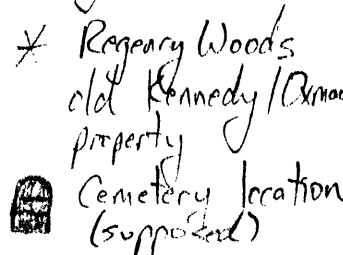 Regency Woods
old Kennedy /
property
Cemetery location
(supposed)